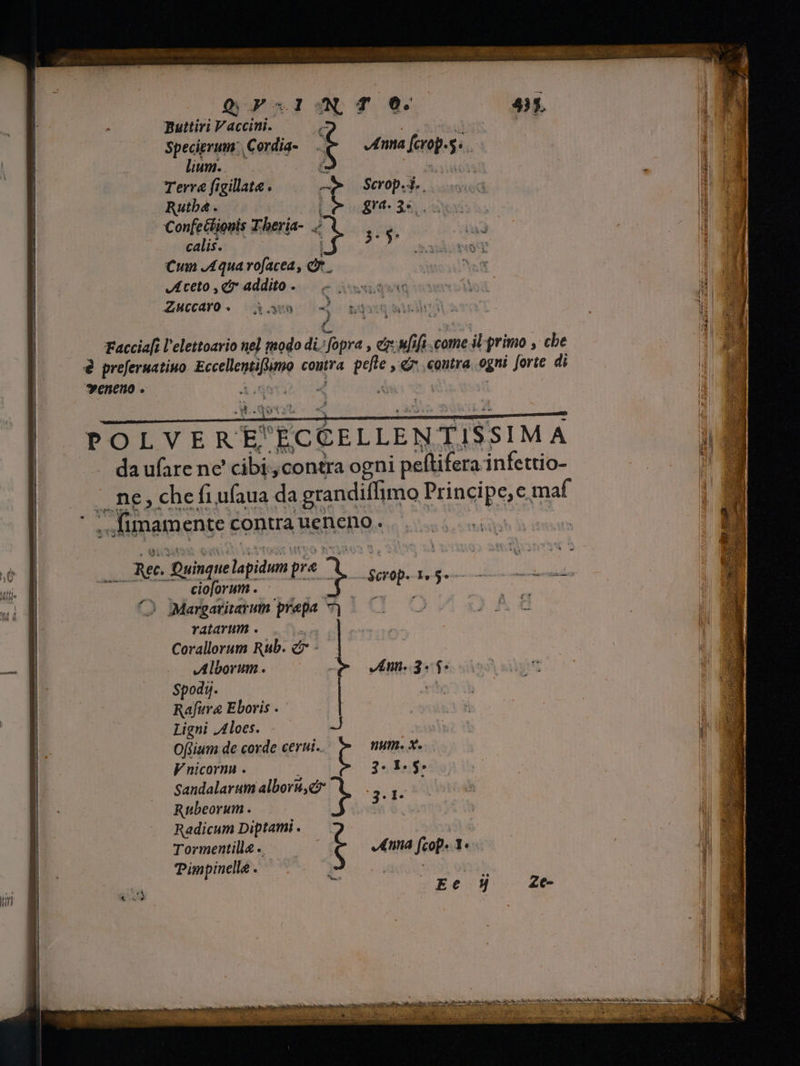 QVINTO. 435.
Buttiri Vaccini.
Specierum Cordia- Anna scrop.s.
lium.
Terræ sigillatæ. Scrop.s.
Ruthæ. gra. 3.
Confectionis Theria- 3. s.
calis.
Cum Aqua rosacea, &
Aceto, & addito.
Zuccaro.
Facciasi l'elettoario nel modo di sopra, & usisi come il primo, che
è preseruatiuo Eccellentissimo contra peste, & contra ogni sorte di
veneno.
POLVERE ECCELLENTISSIMA
da usare ne' cibi, contra ogni pestifera infettio-
ne, che si usaua da grandissimo Principe, e mas
simamente contra ueneno.
Rec. Quinque lapidum præ Scrop. 1. s.
ciosorum.
Margaritarum præpa
ratarum.
Corallorum Rub. &
Alborum. Ann. 3. s.
Spodij.
Rasuræ Eboris.
Ligni Aloes.
Ossium de corde cerui. num. x.
Vnicornu. 3. 1. s.
Sandalarum alborũ, & 3. 1.
Rubeorum.
Radicum Diptami.
Tormentillæ. Anna scop. 1.
Pimpinellæ.
Ee ij Ze-